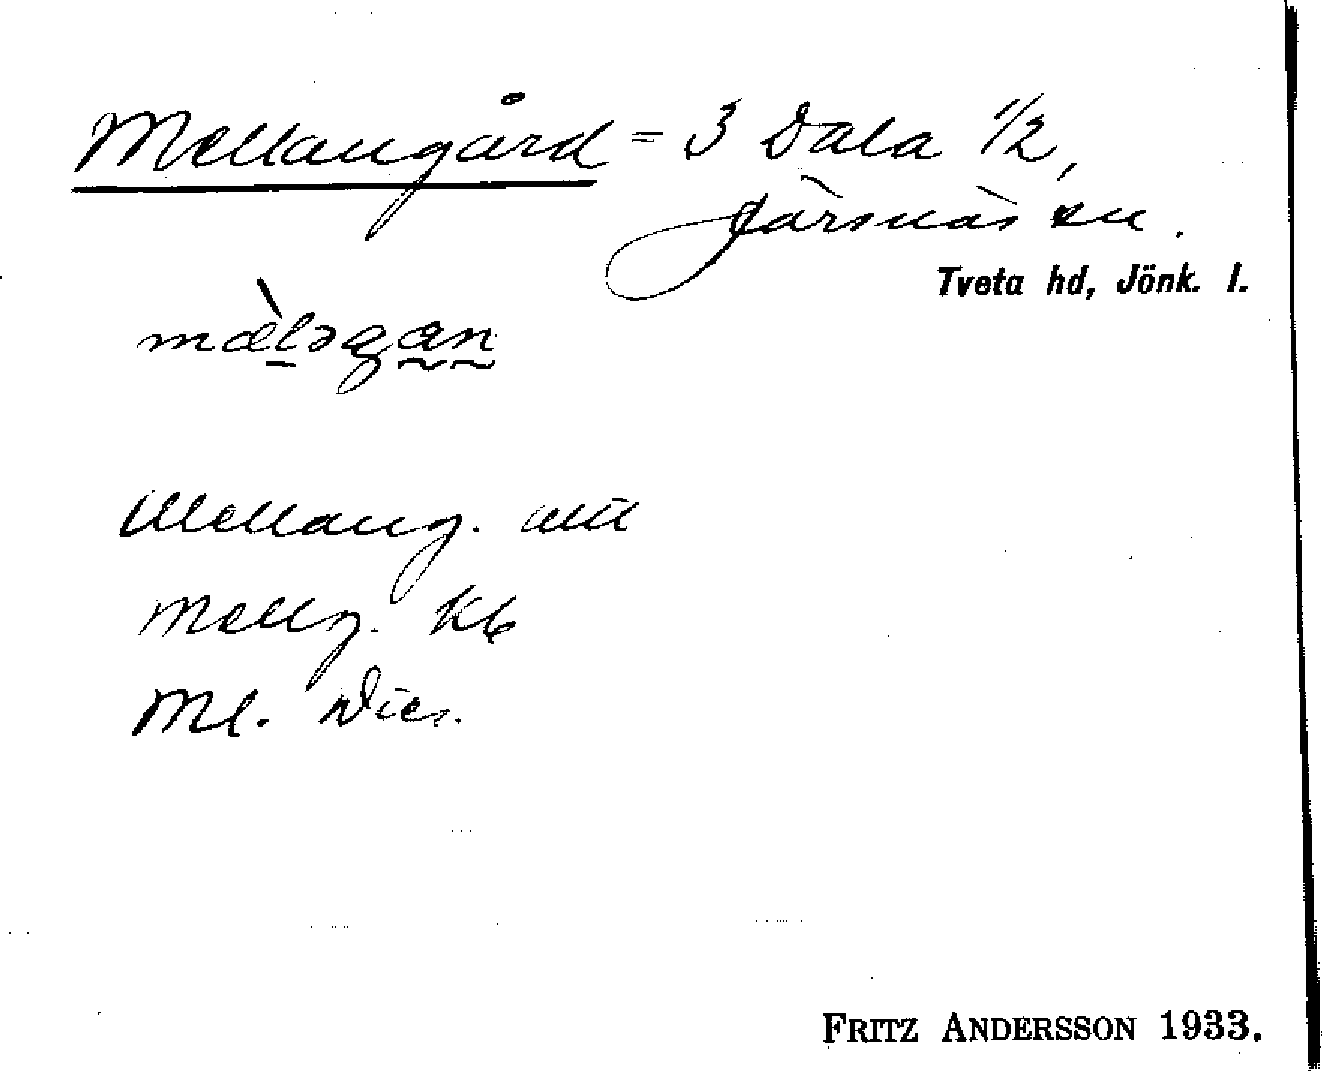 Mellangård = 3 Dala 1/2,
Järsnäs sn.
Tveta hd, Jönk. l.
mæ̀ləgan
Mellang. allm
Mellg. Kb
Ml. Dier.
FRITZ ANDERSSON 1933.